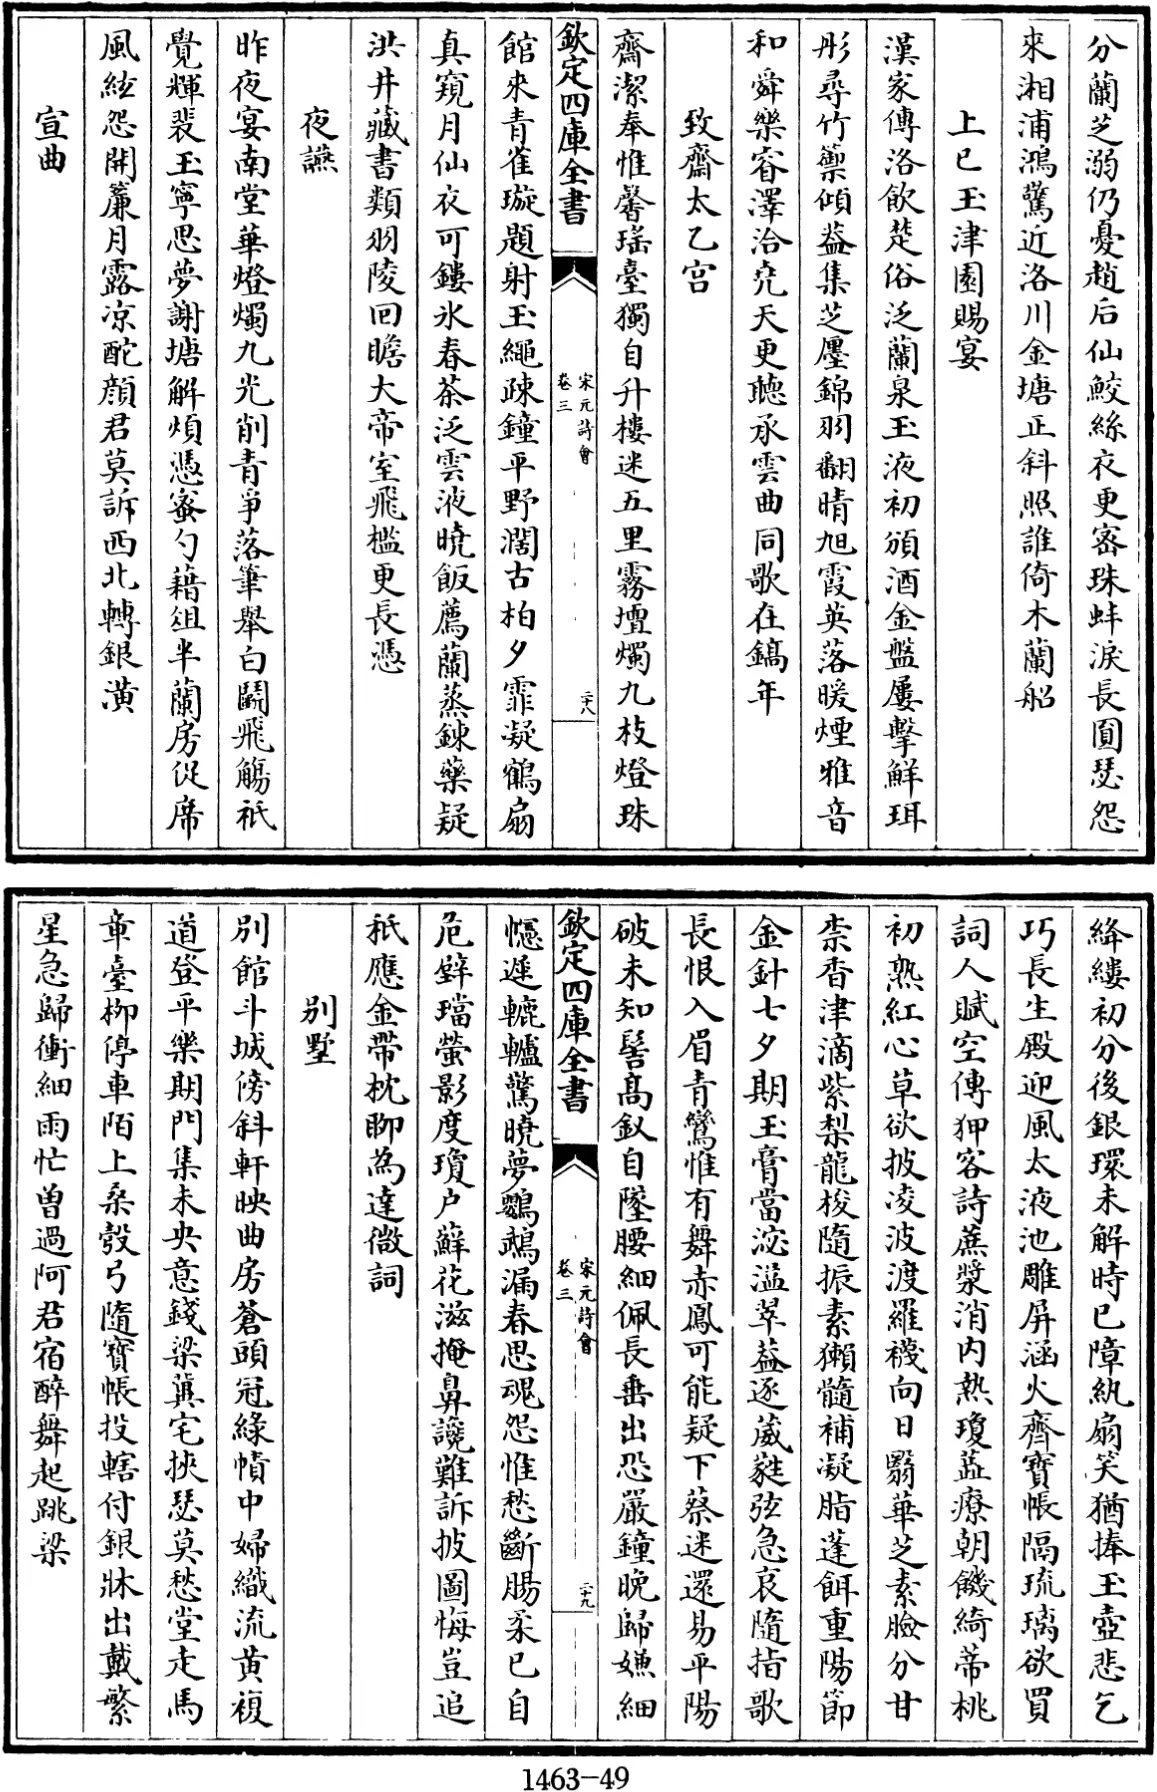 分蘭芝溺仍憂趙后仙鮫絲衣更密珠蚌淚長圓瑟怨
來湘浦鴻驚近洛川金塘正斜照誰倚木蘭船
上巳玉津園賜宴
漢家傳洛飲楚俗泛蘭泉玉液初頒酒金盤屢擊鮮珥
彤尋竹籞傾葢集芝廛錦羽翻晴旭霞英落暖煙雅音
和舜樂睿澤洽堯天更聽承雲曲同歌在鎬年
致齋太乙宫
齋潔奉惟馨瑤臺獨自升樓迷五里霧壇燭九枝燈珠
欽定四庫全書
宋元詩會
卷三
二十八
館來青雀璇題射玉繩疎鐘平野濶古柏夕霏凝鶴扇
真窺月仙衣可鏤氷春茶泛雲液曉飯薦蘭蒸鍊藥疑
洪井藏書類羽陵回瞻大帝室飛檻更長憑
夜讌
昨夜宴南堂華燈燭九光削青爭落筆舉白鬭飛觴祇
覺輝裴玉寧思夢謝塘解煩憑蜜勺藉俎半蘭房促席
風絃怨開簾月露凉酡顔君莫訴西北轉銀潢
宣曲
絳縷初分後銀環未解時已障紈扇笑猶捧玉壺悲乞
巧長生殿迎風太液池雕屏涵火齊寶帳隔琉璃欲買
詞人賦空傳狎客詩蔗漿消内熱瓊蕋療朝饑綺蒂桃
初熟紅心草欲披凌波渡羅襪向日翳華芝素臉分甘
柰香津滴紫梨龍梭隨振素獺髓補凝脂蓬餌重陽節
金針七夕期玉膏當瀣溢翠葢逐葳蕤弦急哀隨指歌
長恨入眉青鸞惟有舞赤鳳可能疑下蔡迷還易平陽
破未知髻高釵自墜腰細佩長垂出恐嚴鐘晩歸嫌細
欽定四庫全書
宋元詩會
卷三
二十九
幰遲轆轤驚曉夢鸚鵡漏春思魂怨惟愁斷腸柔已自
危壁璫螢影度瓊户蘚花滋掩鼻讒難訴披圖悔豈追
祇應金帶枕聊為達微詞
别墅
别館斗城傍斜軒映曲房蒼頭冠綠幘中婦織流黄複
道登平樂期門集未央意錢梁冀宅挾瑟莫愁堂走馬
章臺柳停車陌上桑彀弓隨寶帳投轄付銀牀出戴繁
星急歸衝細雨忙曾過阿君宿醉舞起跳梁
1463-49